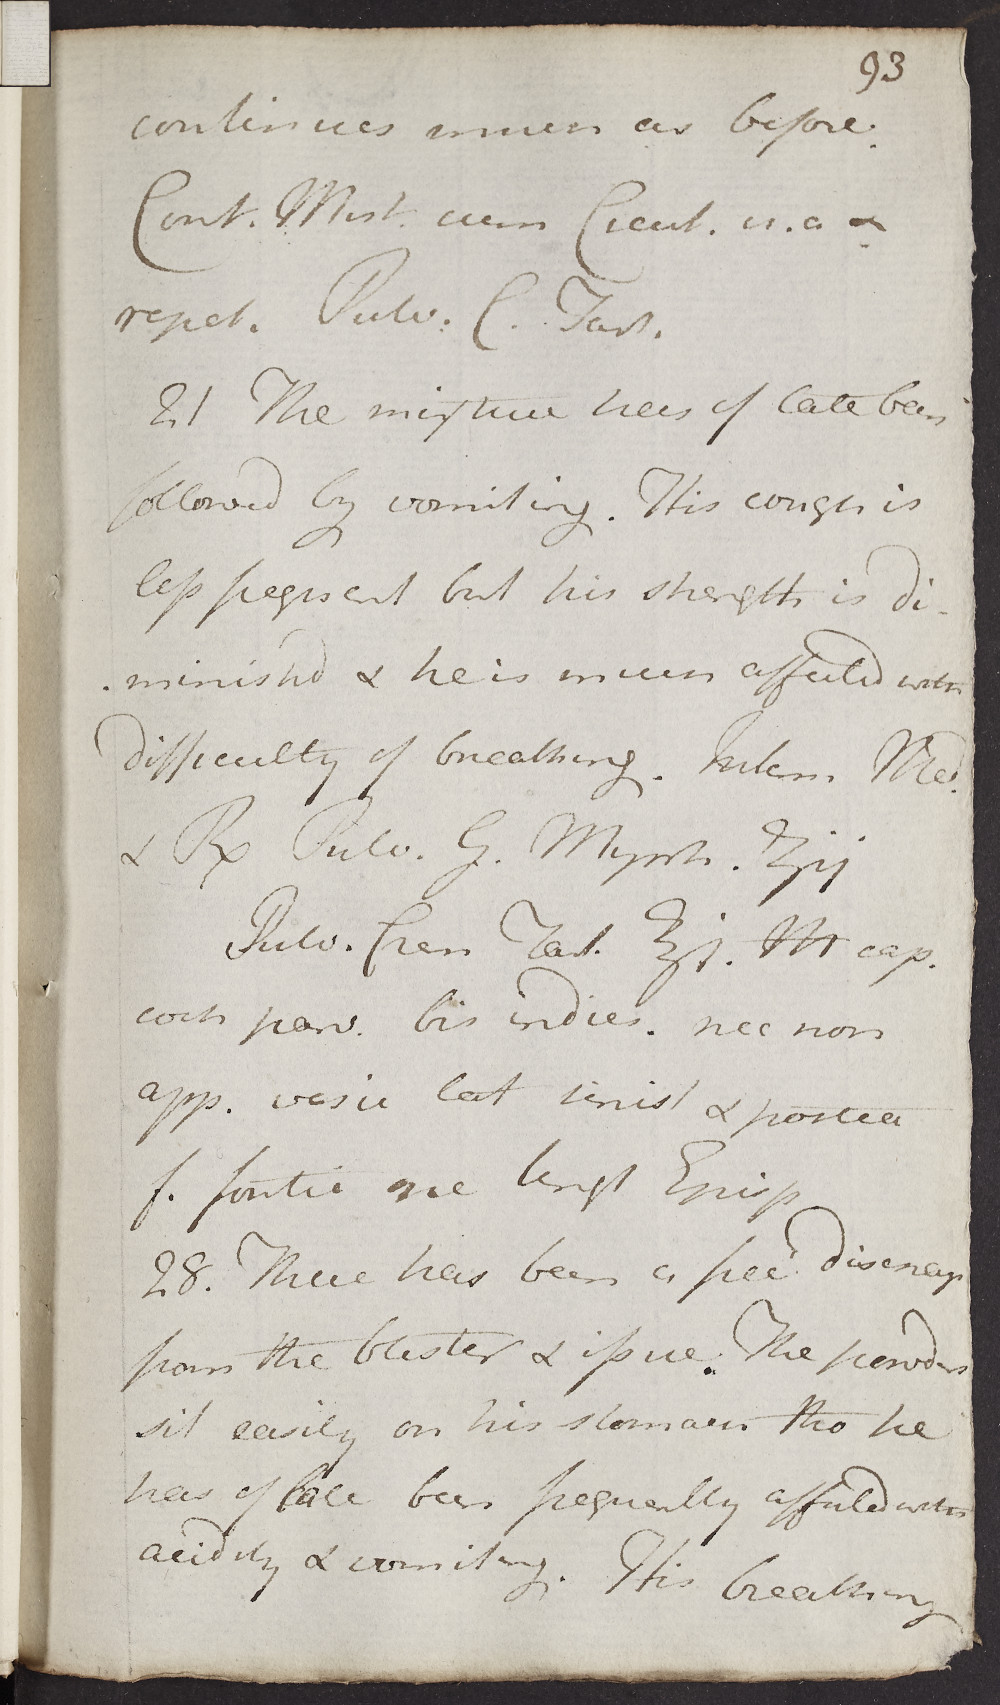 93
continues much as before.
Cont. Mist. cum Cicut. u.a &
repet. Pulv. C. Tart.
21 The mixture has of late been
followed by vomiting. His cough is
less frequent but his strength is di-
minishd & he is much affected with
difficulty of breathing. Interm. Med.
& Rx Pulv. G. Myrrh. ʒij
Pulv. Crem Tart. ʒj. M cap.
coch parv. bis indies. nec non
app. vesic lat sinist & postea
f. fontic Episp
28. There has been a free discharge
from the blister & issue. The powders
sit easily on his stomach tho he
has of late been frequently affected with
acidity & vomiting. His breathing